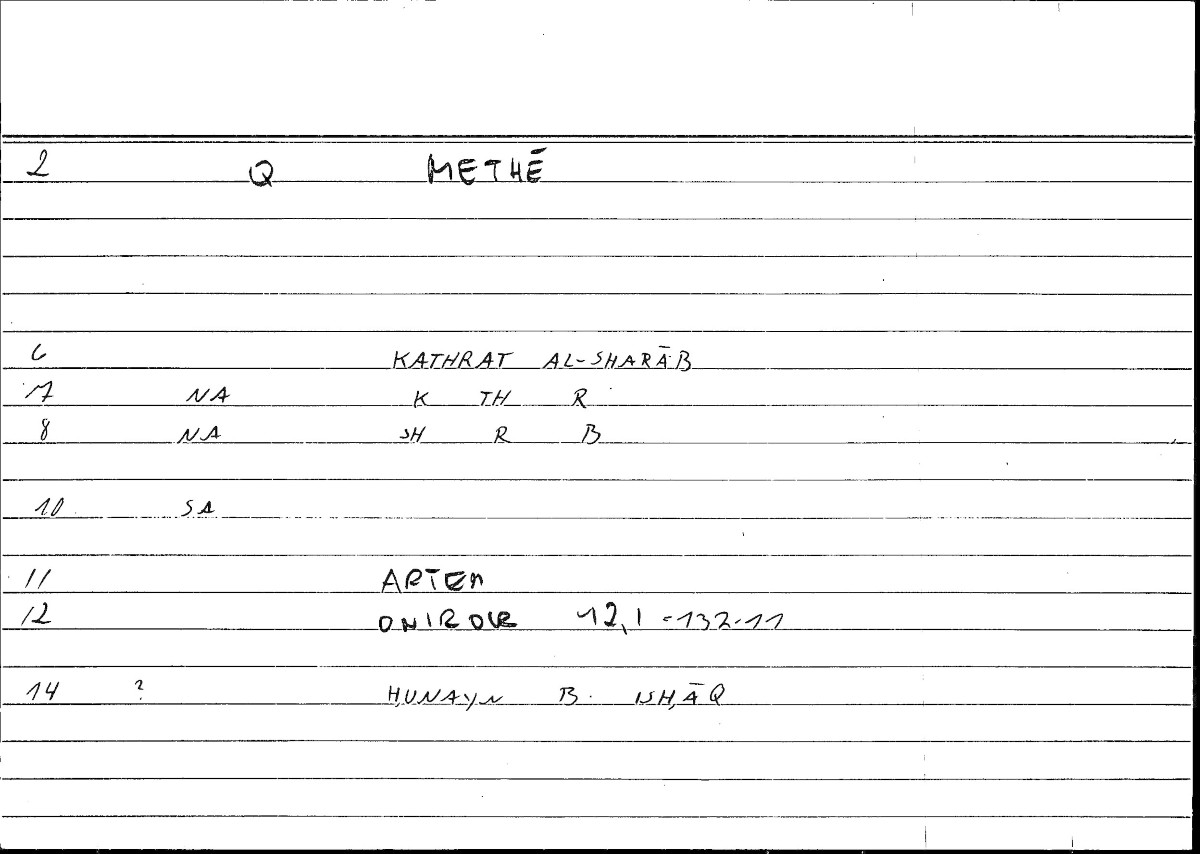 2 Q METHĒ
6 KATHRAT AL-SHARĀB
7 NA K TH R
8 NA SH R B
10 SA
11 ARTEM
12 ONIROCR 12,1 = 132.11
14 ? ḤUNAYN B. ISḤĀQ